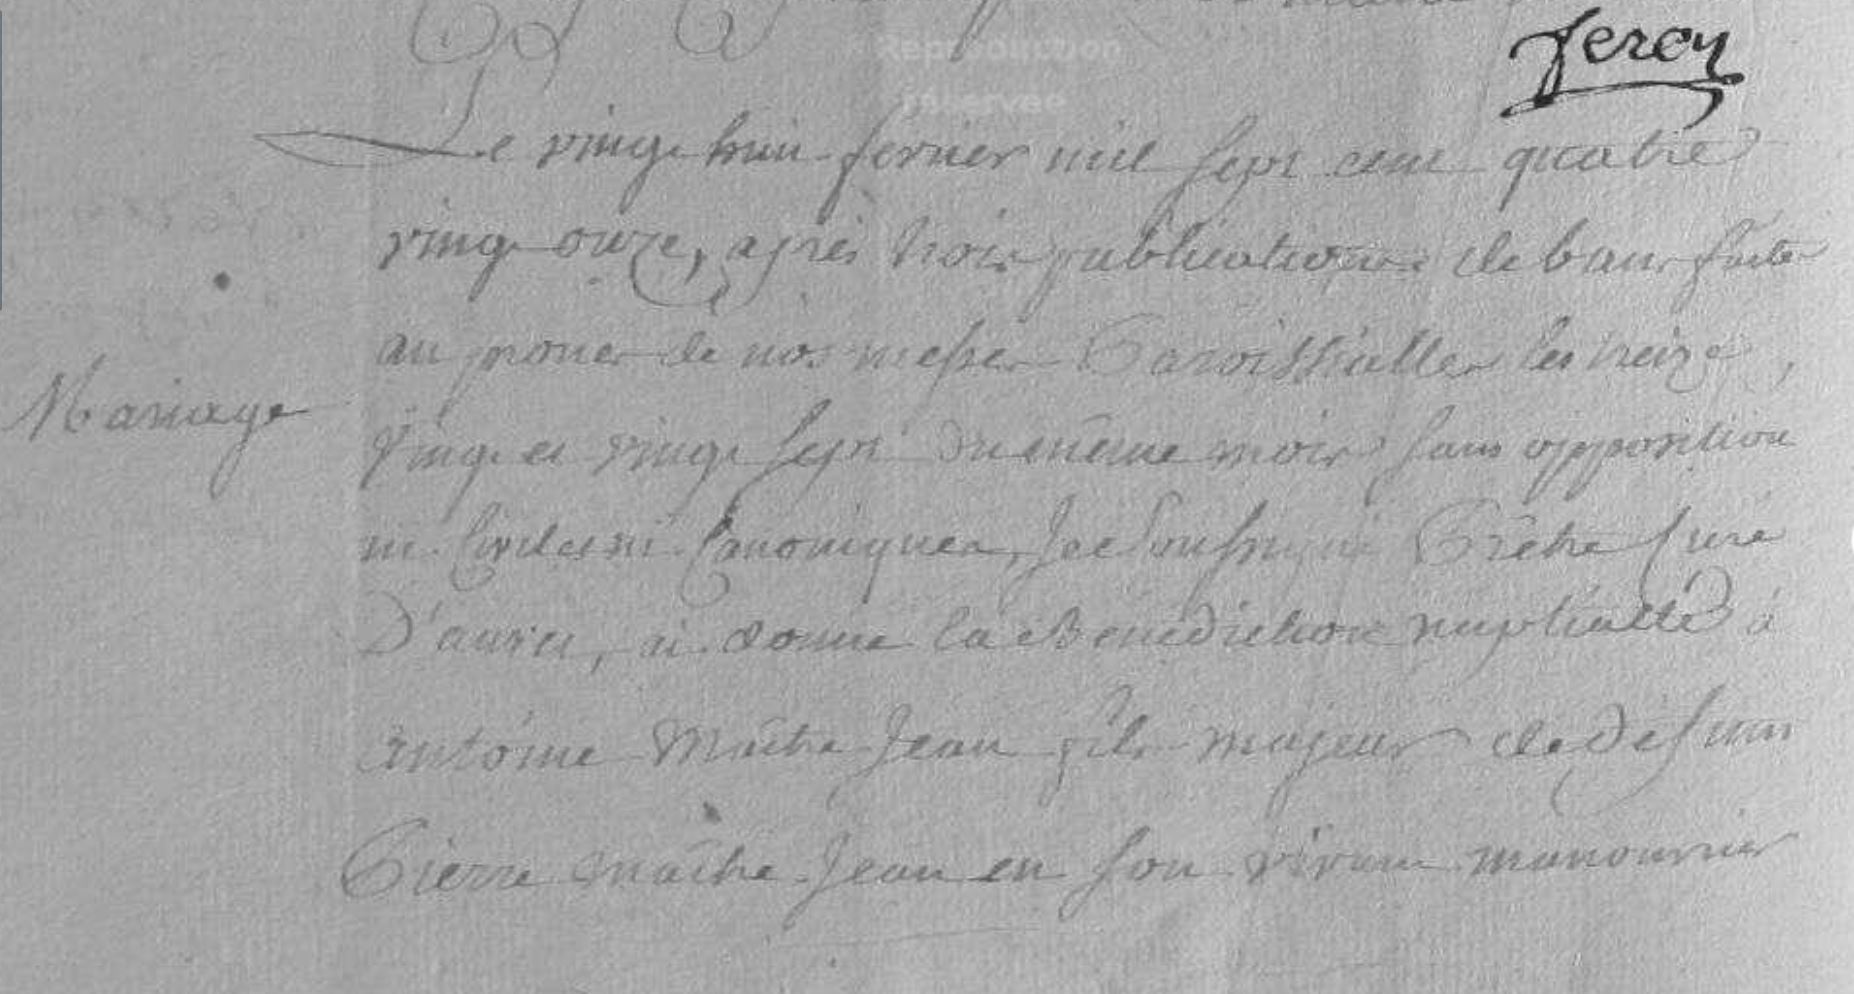 feron
Le vingt huit fevrier mil sept cent quatre
vingt onze, après trois publications de bans faites
au prone de nos messes Paroissialles les treize,
Mariage
vingt et vingt sept du même mois sans opposition
ni Civiles ni Canoniques, Je Soussigné Prêtre Curé
D'aurei, ai donné la Bénédiction nuptialle à
antoine Maitre Jean fils majeur de Defunt
Pierre maitre Jean en son vivant manouvrier